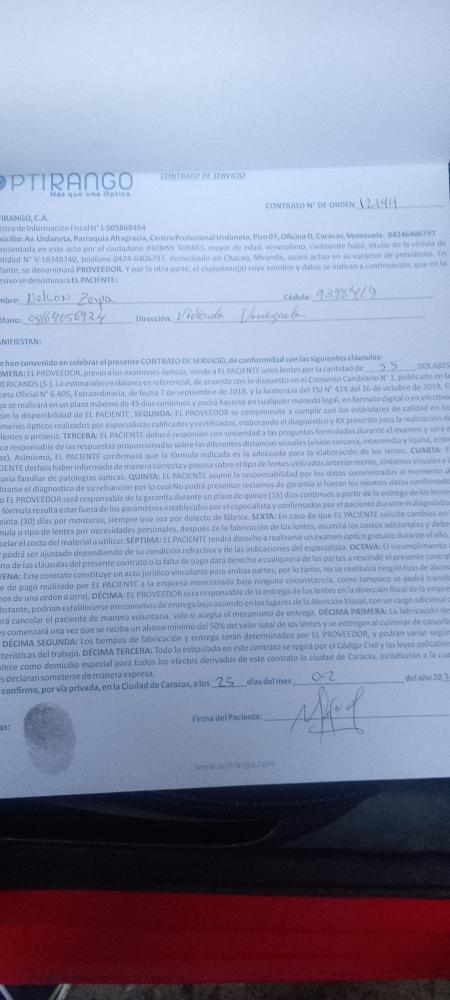 OPTIRANGO
Más que una Óptica
CONTRATO DE SERVICIO
CONTRATO N° DE ORDEN 12144
TIRANGO, C.A.
istro de Información Fiscal N° J-505868454
micilio: Av. Urdaneta, Parroquia Altagracia, Centro Profesional Urdaneta, Piso 07, Oficina D, Caracas, Venezuela. 04246406797
presentada en este acto por el ciudadano JHONNY TORRES, mayor de edad, venezolano, civilmente hábil, titular de la cédula de
ntidad N° V-18348340, teléfono 0424-6406797, domiciliado en Chacao, Miranda, quien actúa en su carácter de presidente. En
lante, se denominará PROVEEDOR. Y por la otra parte, el ciudadano(a) cuyo nombre y datos se indican a continuación, que en lo
esivo se denominará EL PACIENTE:
mbre: Nelson Zerpa Cédula: 9385419
éfono: 04169056924 Dirección: Vivienda Venezuela
ANIFIESTAN:
e han convenido en celebrar el presente CONTRATO DE SERVICIO, de conformidad con las siguientes cláusulas:
IMERA: EL PROVEEDOR, previo a los exámenes ópticos, vende a EL PACIENTE unos lentes por la cantidad de 55 DÓLARES
MERICANOS ($-). La estimación en dólares es referencial, de acuerdo con lo dispuesto en el Convenio Cambiario N° 1, publicado en la
ceta Oficial N° 6.405, Extraordinaria, de fecha 7 de septiembre de 2018, y la Sentencia del TSJ N° 424 del 16 de octubre de 2019. El
go se realizará en un plazo máximo de 45 días continuos y podrá hacerse en cualquier moneda legal, en formato digital o en efectivo
gún la disponibilidad de EL PACIENTE. SEGUNDA: EL PROVEEDOR se compromete a cumplir con los estándares de calidad en los
menes ópticos realizados por especialistas calificados y certificados, elaborando el diagnóstico y RX prescrito para la realización de
lentes o prótesis. TERCERA: EL PACIENTE deberá responder con sinceridad a las preguntas formuladas durante el examen y será e
co responsable de las respuestas proporcionadas sobre las diferentes distancias visuales (visión cercana, intermedia y lejana, entre
as). Asimismo, EL PACIENTE confirmará que la fórmula indicada es la adecuada para la elaboración de los lentes. CUARTA: E
CIENTE declara haber informado de manera correcta y precisa sobre el tipo de lentes utilizados anteriormente, síntomas visuales y
toria familiar de patologías ópticas. QUINTA: EL PACIENTE asume la responsabilidad por los datos suministrados al momento d
lizarse el diagnóstico de su refracción por lo cual No podrá presentar reclamos de garantía si fueran los mismos datos confirmad
o EL PROVEEDOR será responsable de la garantía durante un plazo de quince (15) días continuos a partir de la entrega de los lente
fórmula resulta estar fuera de los parámetros establecidos por el especialista y confirmados por el paciente durante el diagnóstic
einta (30) días por monturas, siempre que sea por defecto de fábrica. SEXTA: En caso de que EL PACIENTE solicite cambios en
mula o tipo de lentes por necesidades personales, después de la fabricación de los lentes, asumirá los costos adicionales y debe
celar el costo del material a utilizar. SÉPTIMA: EL PACIENTE tendrá derecho a realizarse un examen óptico gratuito durante el año,
podrá ser ajustado dependiendo de su condición refractiva y de las indicaciones del especialista. OCTAVA: El incumplimiento
na de las cláusulas del presente contrato o la falta de pago dará derecho a cualquiera de las partes a rescindir el presente contrat
VENA: Este contrato constituye un acto jurídico vinculante para ambas partes; por lo tanto, no se restituirá ningún tipo de abono
e de pago realizado por EL PACIENTE a la empresa mencionada bajo ninguna circunstancia, como tampoco se podrá transfe
nos de una orden a otra). DÉCIMA: EL PROVEEDOR será responsable de la entrega de los lentes en la dirección fiscal de la empre
bstante, podrían establecerse mecanismos de entrega bajo acuerdo en los lugares de la Atención Visual, con un cargo adicional
erá cancelar el paciente de manera voluntaria, solo si acepta el mecanismo de entrega. DÉCIMA PRIMERA: La fabricación de
es comenzará una vez que se reciba un abono mínimo del 50% del valor total de los lentes y se entregan al culminar de cancela
DÉCIMA SEGUNDA: Los tiempos de fabricación y entrega serán determinados por EL PROVEEDOR, y podrán variar según
cterísticas del trabajo. DÉCIMA TERCERA: Todo lo estipulado en este contrato se regirá por el Código Civil y las leyes aplicables
lece como domicilio especial para todos los efectos derivados de este contrato la ciudad de Caracas, jurisdicción a la cua
s declaran someterse de manera expresa.
confirmo, por vía privada, en la Ciudad de Caracas, a los 25 días del mes 02 del año 202
Firma del Paciente:
as:
www.optirango.com